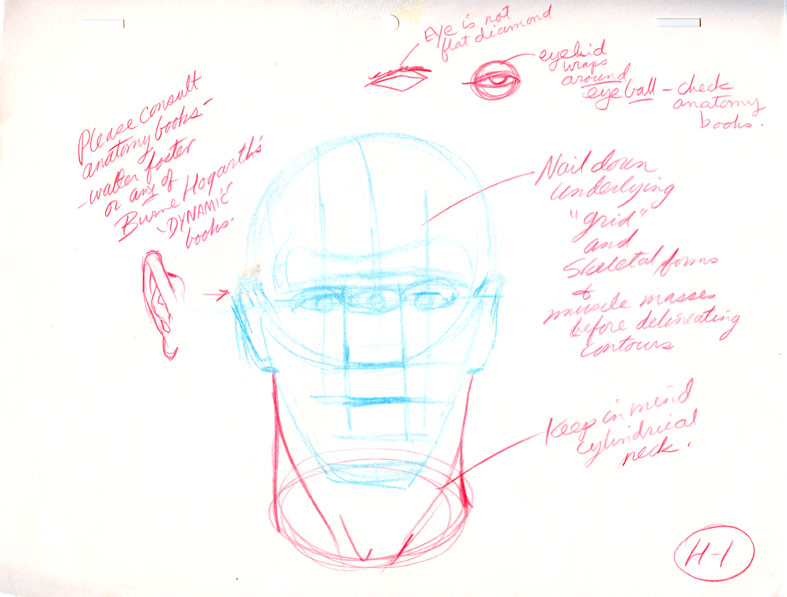 Eye is not
flat diamond
eyelid
wraps
around
eyeball - check
anatomy
books.
Please consult
anatomy books-
-walter foster
or any of
Burne Hogarth's
"DYNAMIC"
books.
Nail down
underlying
"grid"
and
Skeletal forms
&
muscle masses
before delineating
contours
Keep in mind
cylindrical
neck.
H-1